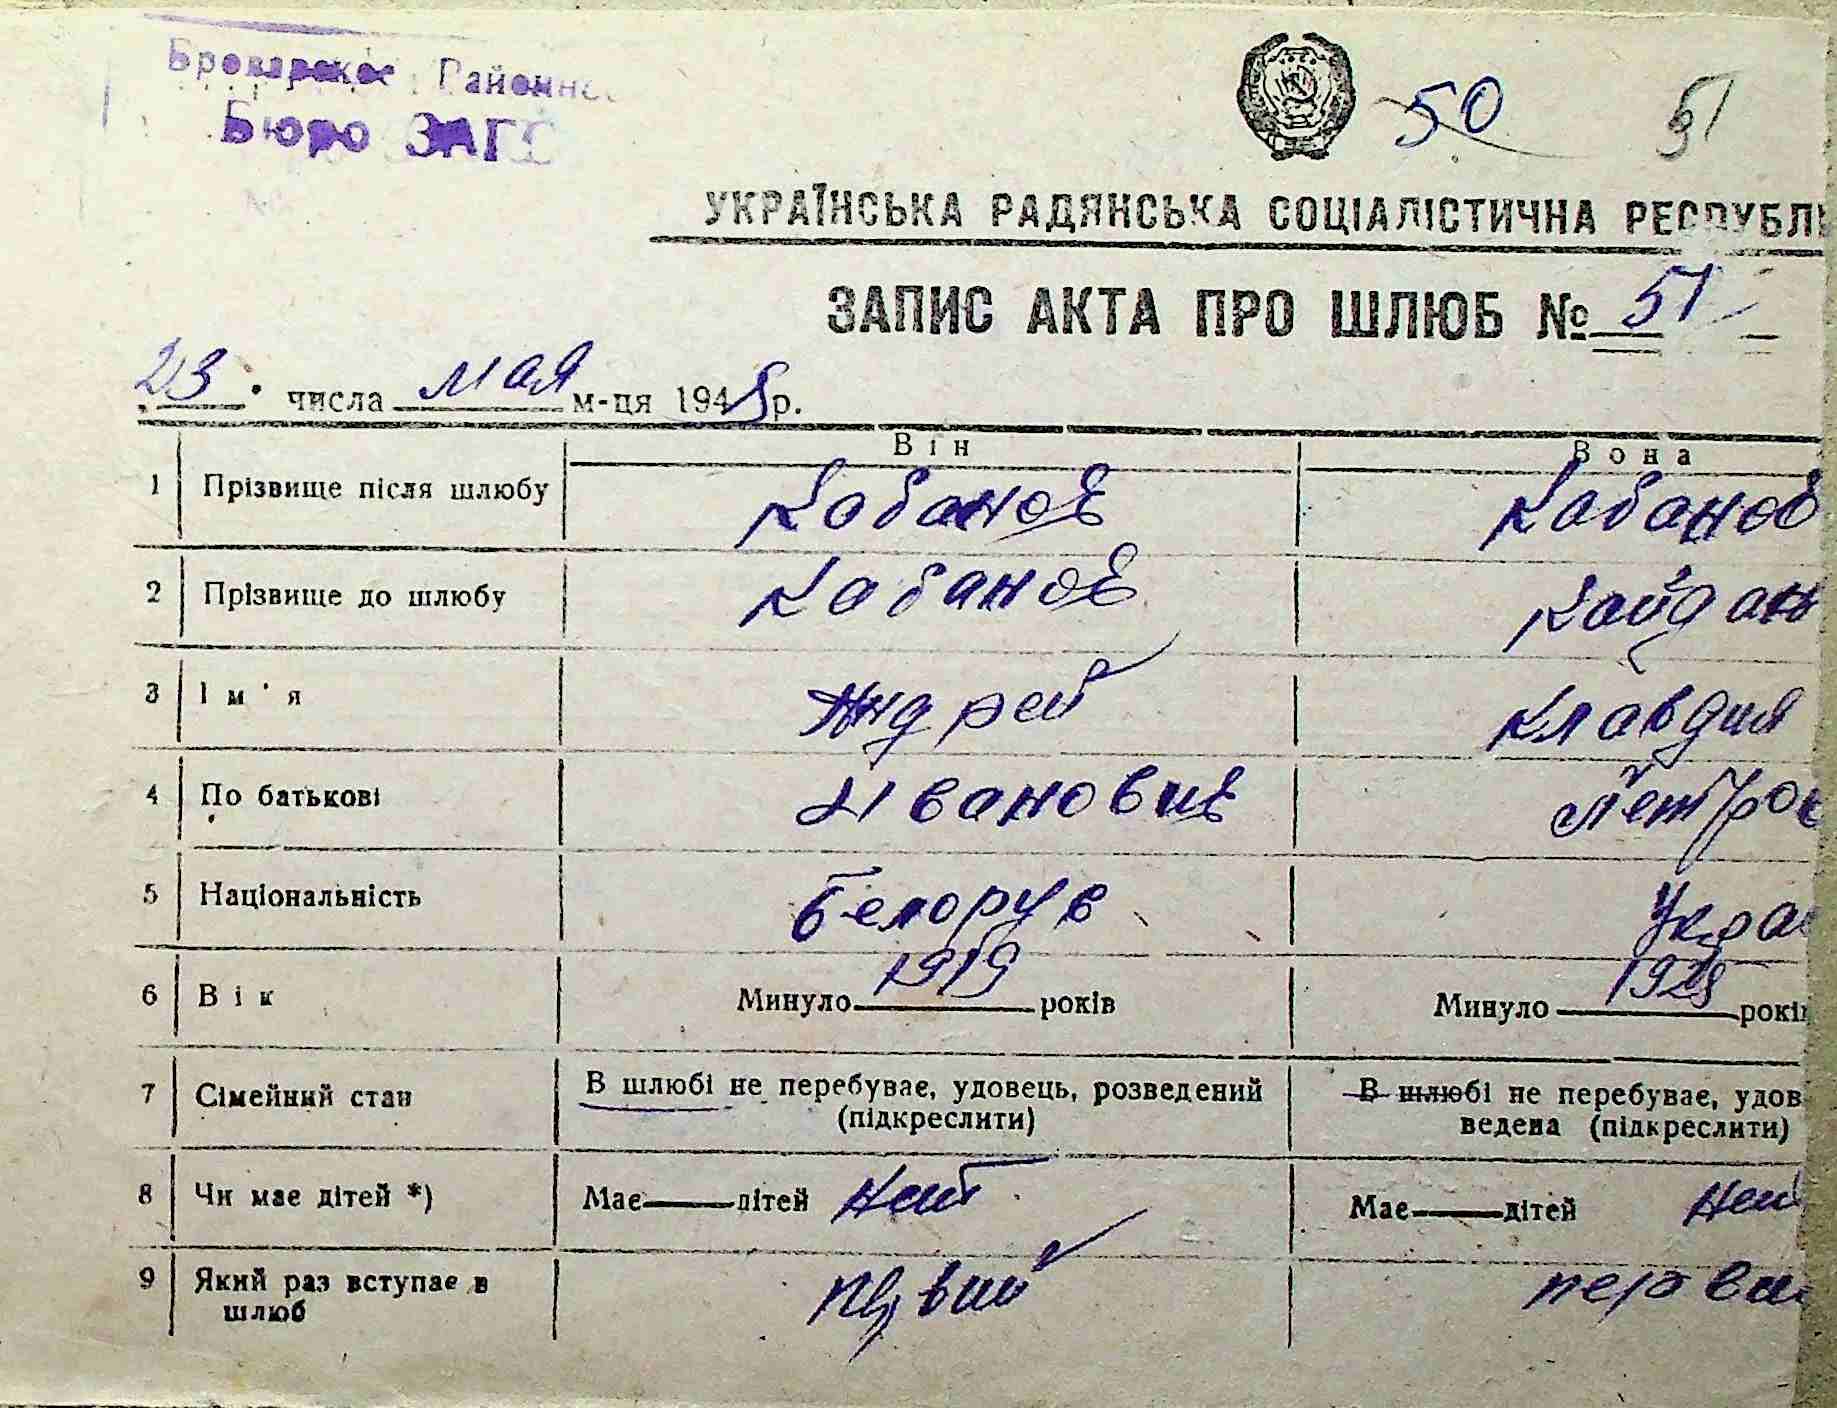 Броварское Районно
Бюро ЗАГС
50 51
УКРАЇНСЬКА РАДЯНСЬКА СОЦІАЛІСТИЧНА РЕСПУБЛІ
ЗАПИС АКТА ПРО ШЛЮБ № 51
23 числа мая м-ця 1945 р.
Він Вона
1 Прізвище після шлюбу Кабанов Кабанов
2 Прізвище до шлюбу Кабанов Кайдан
3 Ім'я Андрей Клавдия
4 По батькові Иванович Петров
5 Національність Белорус Укра
6 Вік Минуло 1919 років Минуло 1925 рокі
7 Сімейний стан В шлюбі не перебуває, удовець, розведений (підкреслити) В шлюбі не перебуває, удов
ведена (підкреслити)
8 Чи має дітей *) Має дітей нет Має дітей нет
9 Який раз вступає в первий перви
шлюб